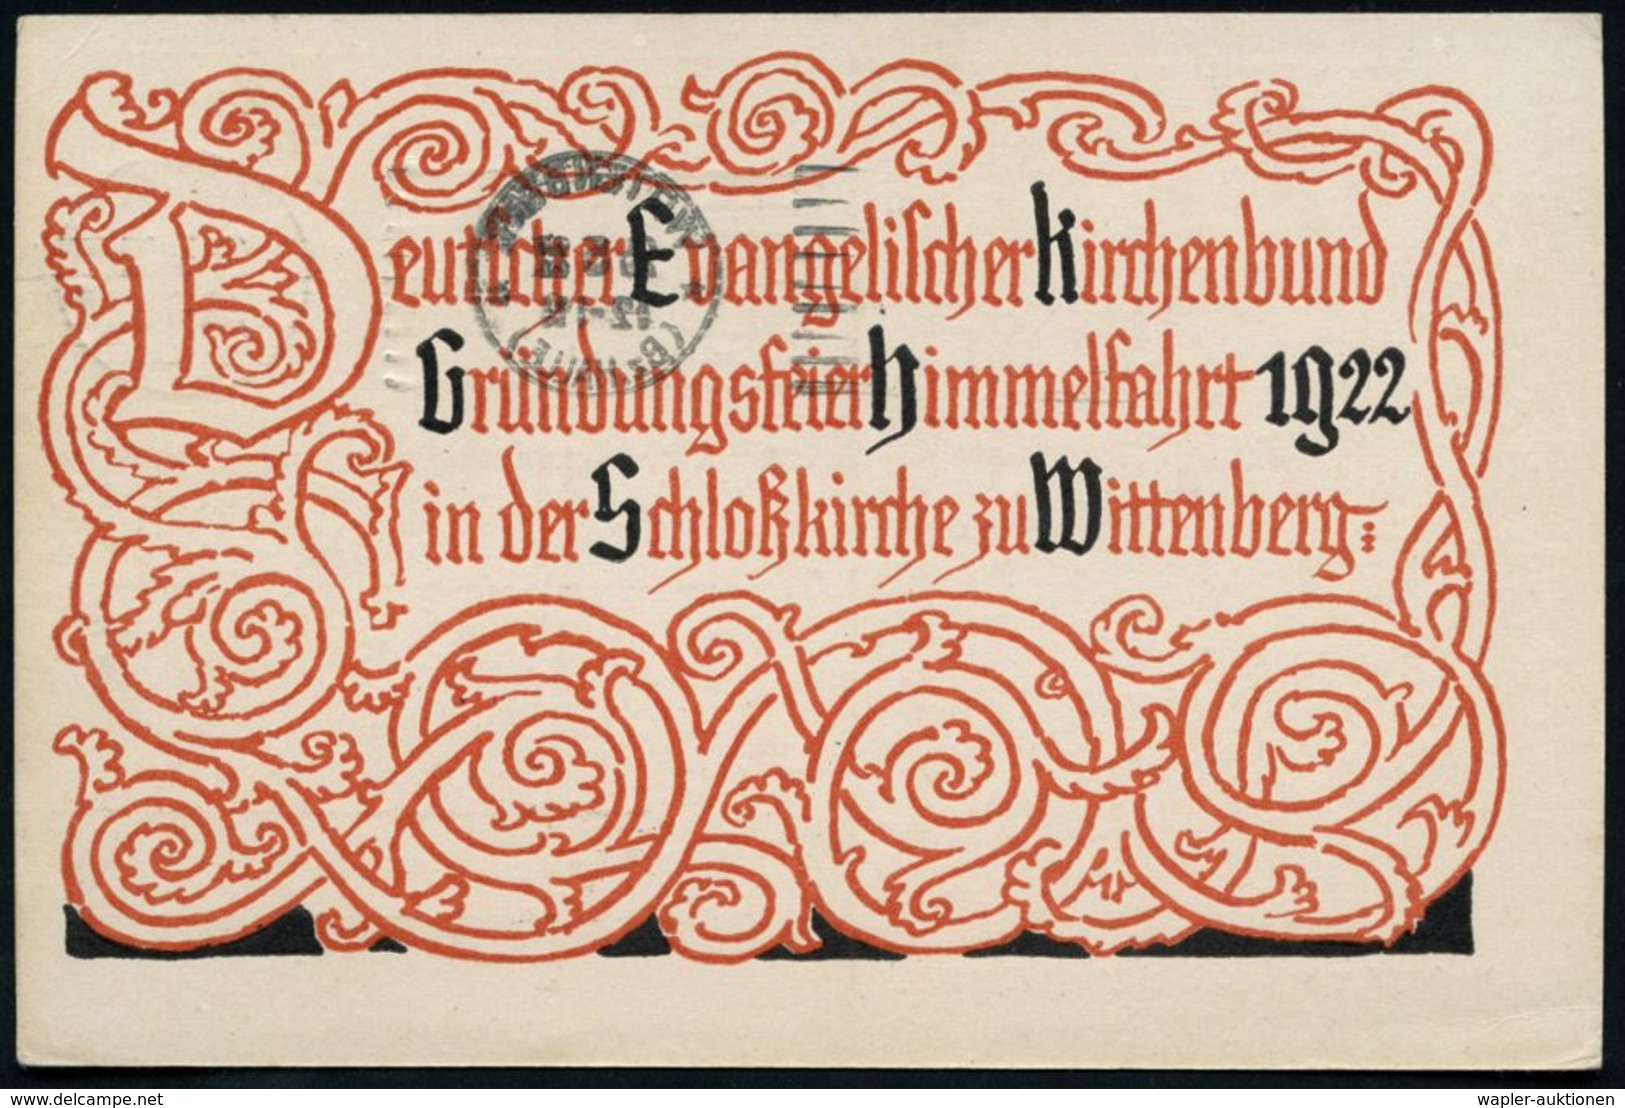 Deutscher Evangelischer Kirchenbund
Gründungsfeier Himmelfahrt 1922
in der Schloßkirche zu Wittenberg:
delcampe.net
wapler-auktionen